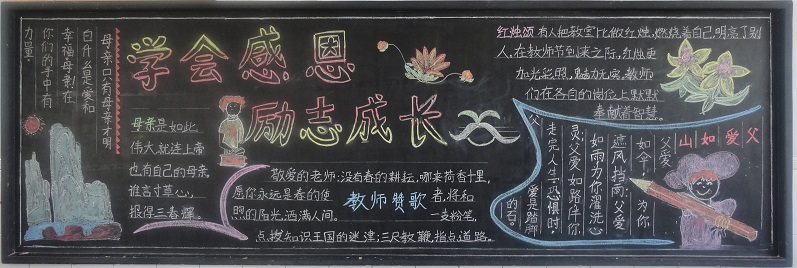 学会感恩
励志成长
母亲只有母亲才明
白什么是爱和
幸福,母亲!在
你们的手中有
力量。
母亲是如此
伟大就连上帝
也有自己的母亲
谁言寸草心,
报得三春辉。
敬爱的老师:没有春的耕耘,哪来荷香十里,
愿你永远是春的使者,将和
煦的阳光,洒满人间。一支粉笔,
点拨知识王国的迷津;三尺教鞭,指点道路。
教师赞歌
红烛颂 有人把教室比做红烛,燃烧着自己,明亮了别
人,在教师节到来之际,红烛更
加光彩照,魅力无穷,教师
们在各自的岗位上默默
奉献着智慧。
父爱如山
父爱
如伞,为你
遮风挡雨;父爱
如雨为你濯洗心
灵;父爱如路伴你
走完人生;恐惧时
父爱是踏脚
的石。